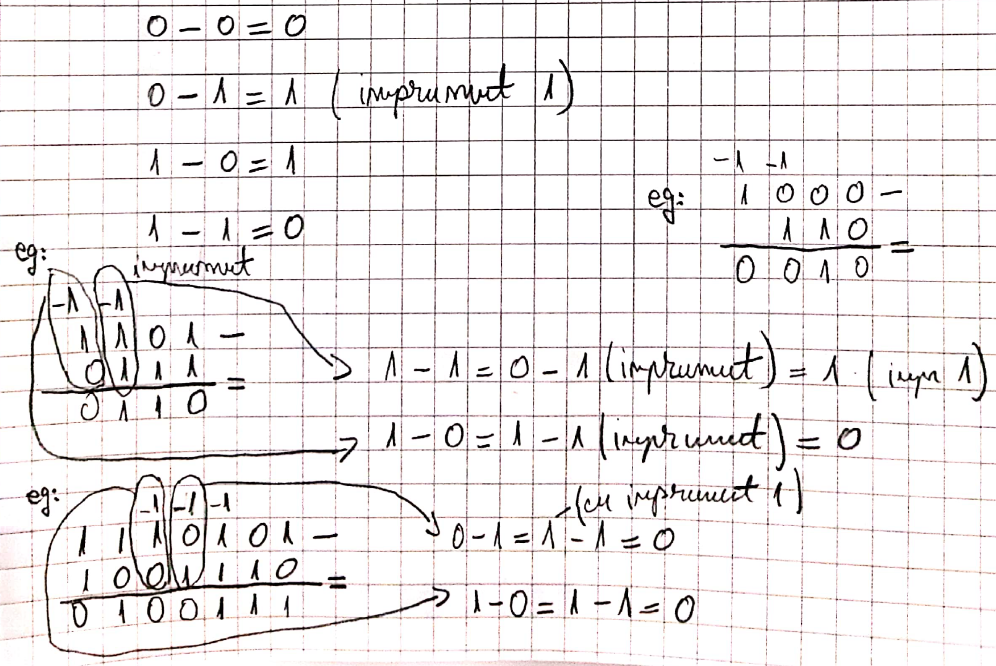 0 - 0 = 0
0 - 1 = 1 (imprumut 1)
1 - 0 = 1
1 - 1 = 0
eg:
-1 -1
1 0 0 0 -
1 1 0
=
0 0 1 0
eg:
imprumut
-1 -1
1 1 0 1 -
0 1 1 1
=
0 1 1 0
1 - 1 = 0 - 1 (imprumut) = 1 (impr 1)
1 - 0 = 1 - 1 (imprumut) = 0
eg:
-1 -1 -1
1 1 1 0 1 0 1 -
1 0 0 1 1 1 0
=
0 1 0 0 1 1 1
(cu imprumut 1)
0 - 1 = 1 - 1 = 0
1 - 0 = 1 - 1 = 0